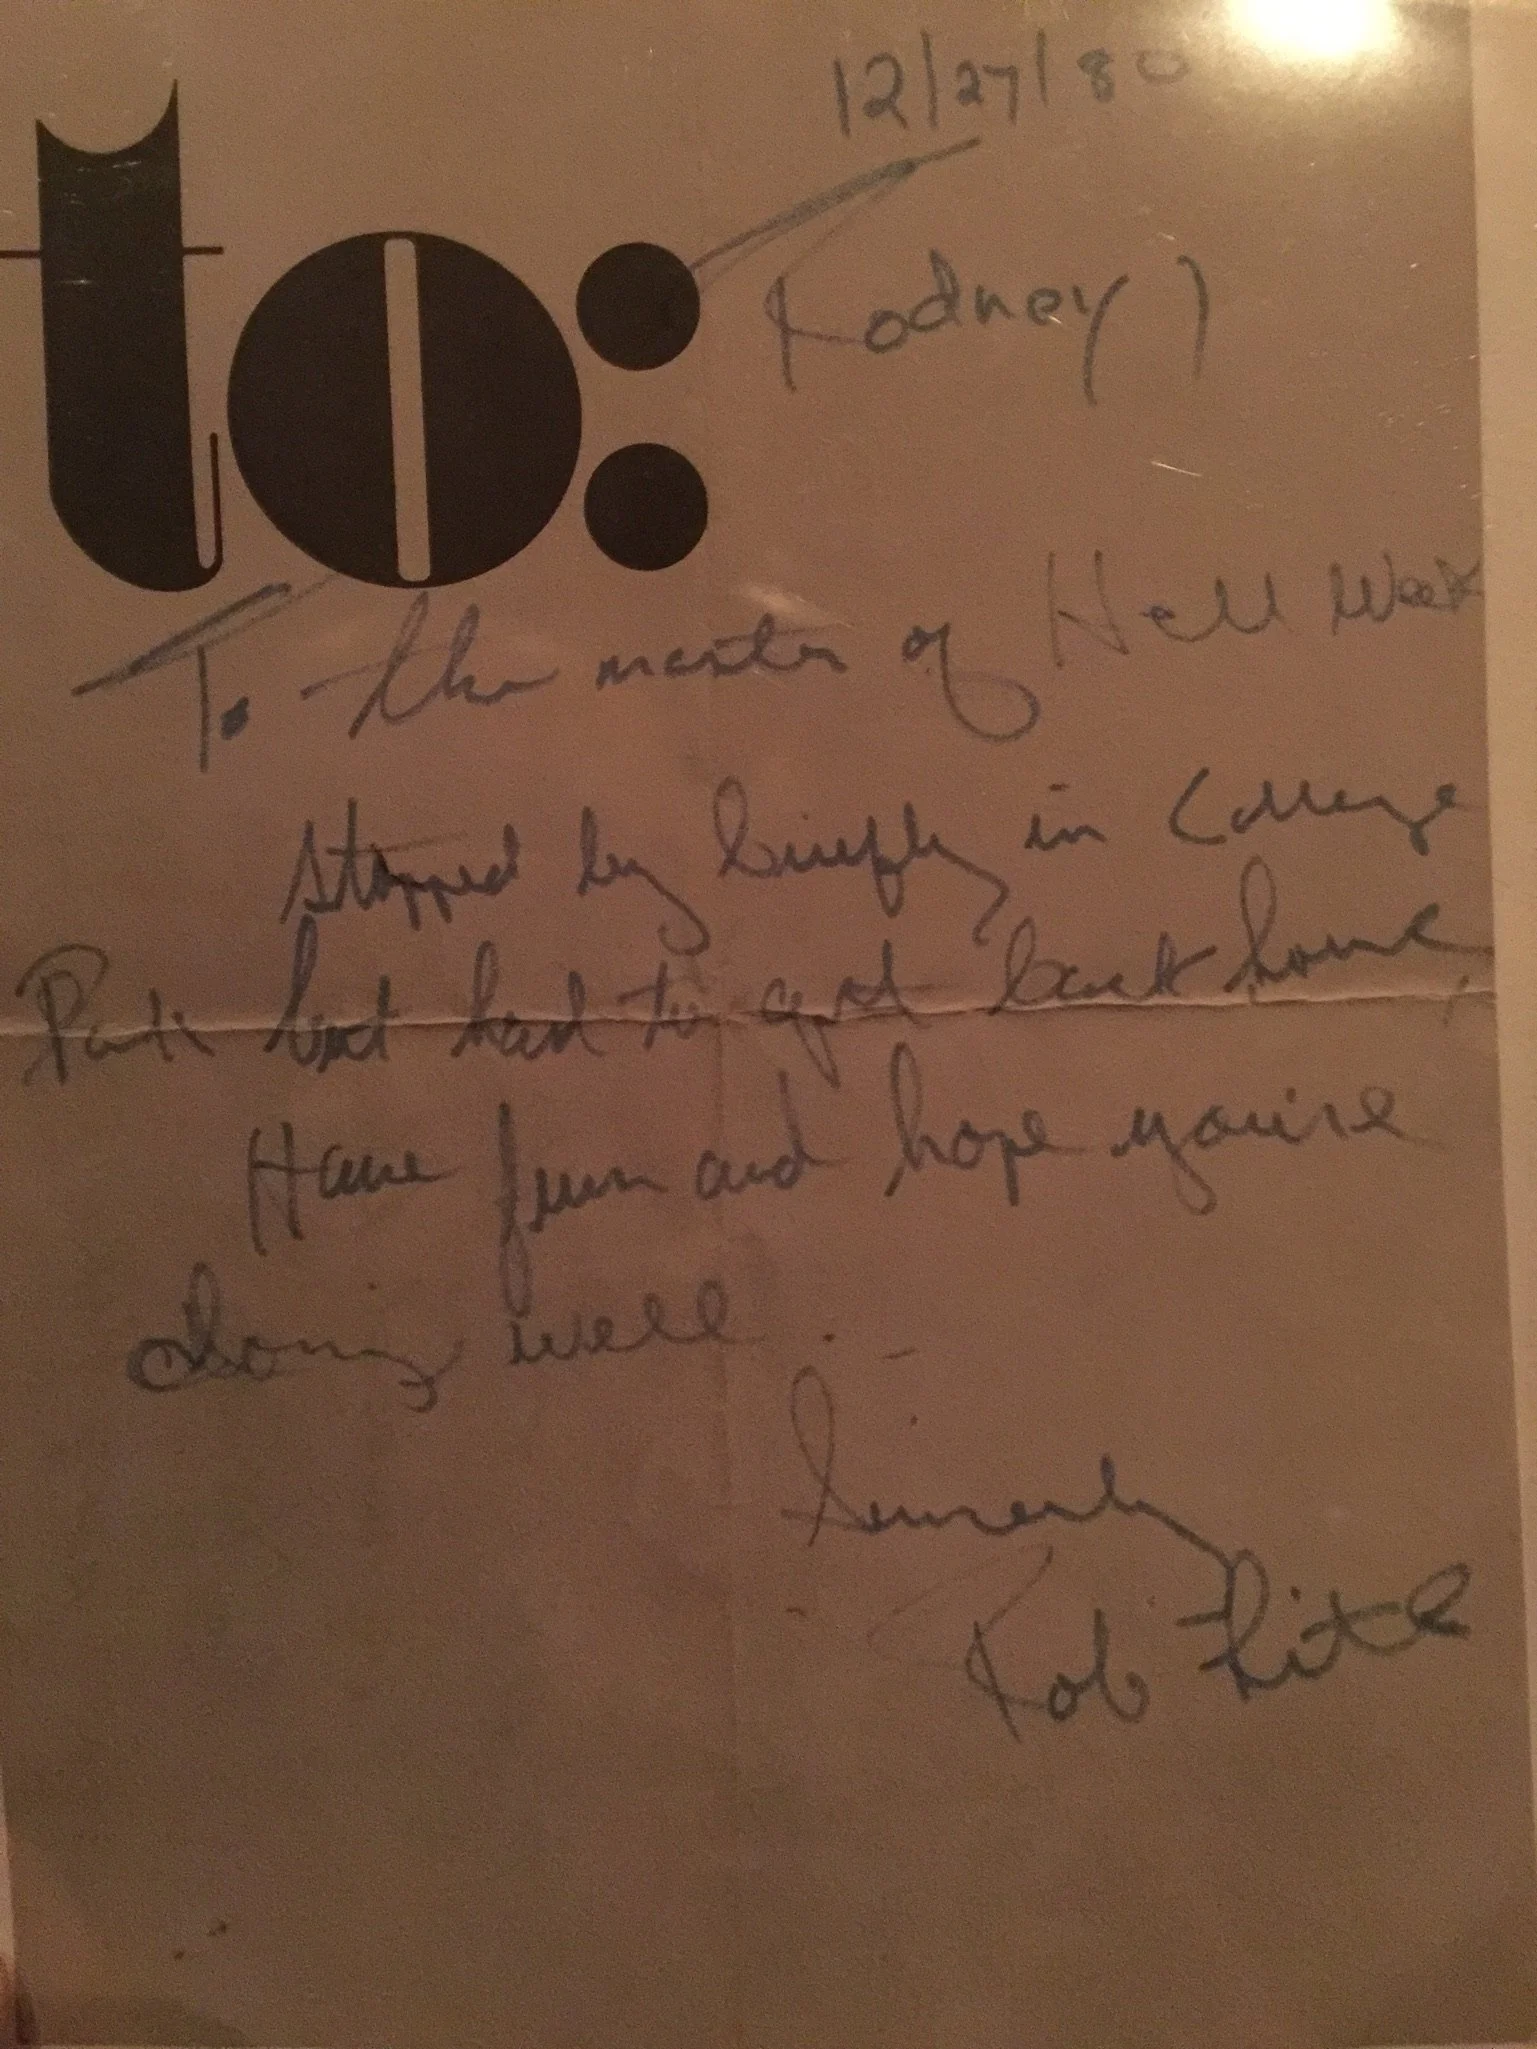 12/27/80
to: Rodney,
To the master of Hell Week
Stopped by briefly in College
Park but had to get back home,
Have fun and hope you're
doing well.
Sincerely
Rob